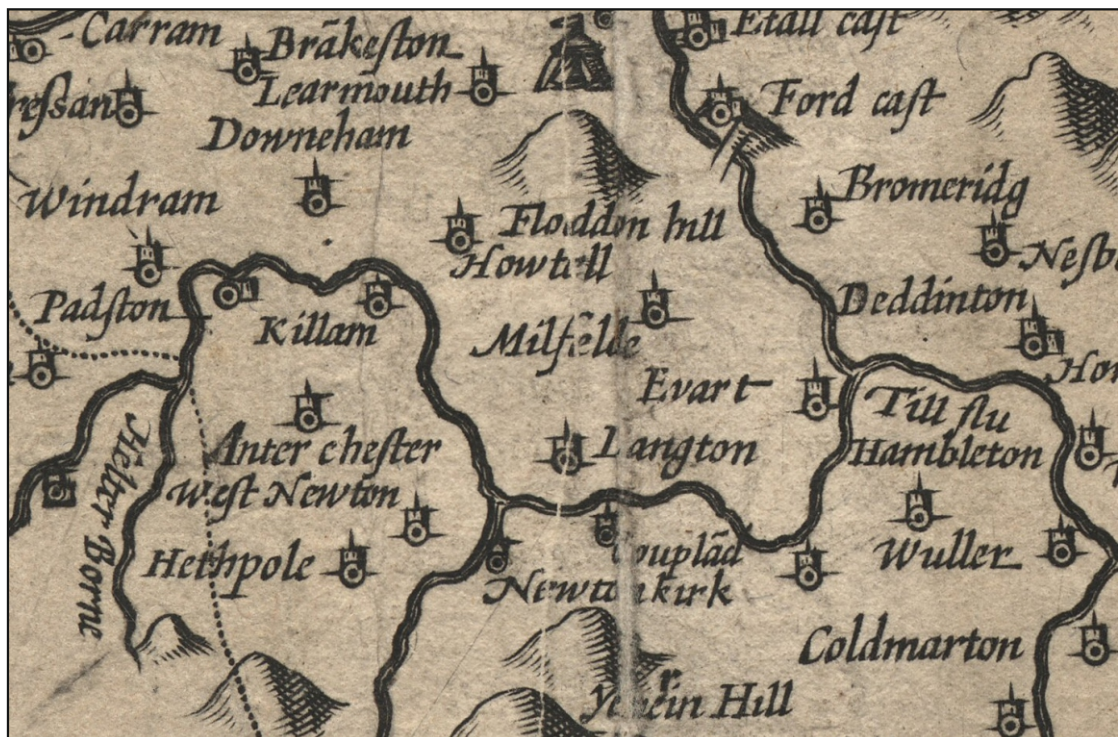 Carram
Brākeston
Etall cast
Learmouth
Ford cast
Downeham
Windram
Bromeridg
Floddon hill
Howtell
Padston
Killam
Deddinton
Milfēlde
Evart
Till flu
Langton
Hambleton
Anter chester
West Newton
Helter Borne
Hethpole
Couplād
Wuller
Newton kirk
Coldmarton
Hill